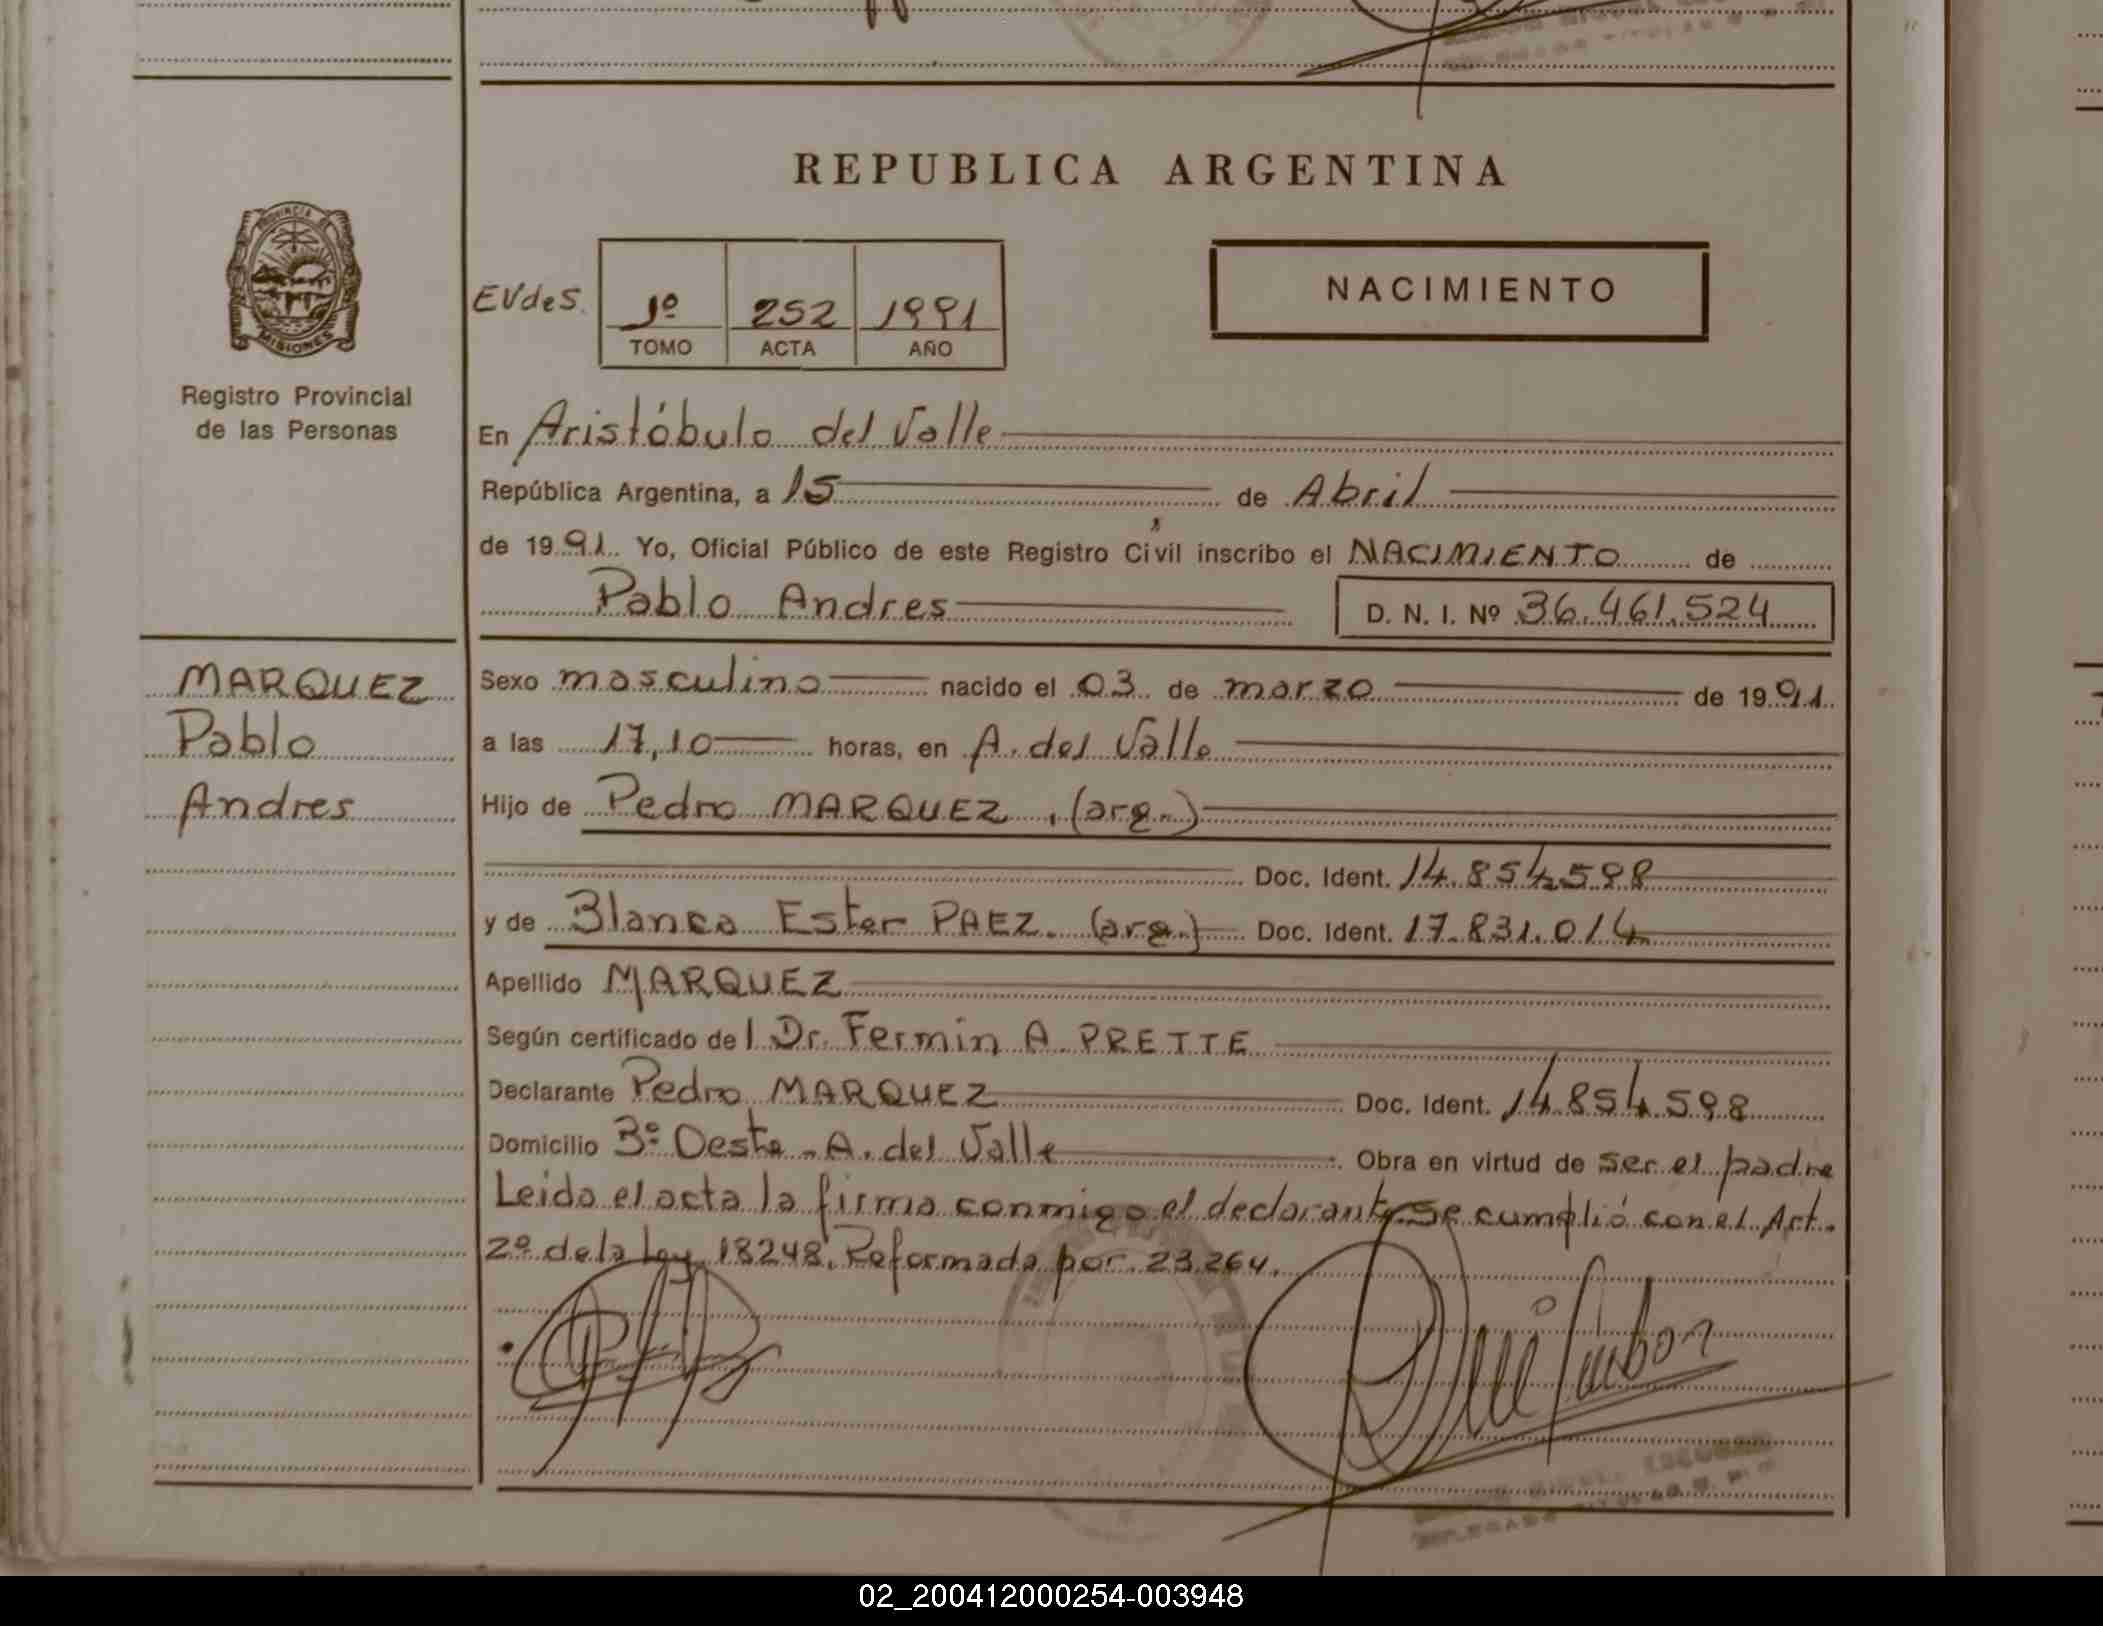 REPUBLICA ARGENTINA
PROVINCIA DE
MISIONES
Registro Provincial
de las Personas
EVdeS.
1º 252 1991
TOMO ACTA AÑO
NACIMIENTO
En Aristóbulo del Valle
República Argentina, a 15 de Abril
de 1991. Yo, Oficial Público de este Registro Civil inscribo el NACIMIENTO de
Pablo Andres D. N. I. Nº 36.461.524
MARQUEZ
Pablo
Andres
Sexo masculino nacido el 03 de marzo de 1991
a las 17,10 horas, en A. del Valle
Hijo de Pedro MARQUEZ, (arg.)
Doc. Ident. 14.854.598
y de Blanca Ester PAEZ. (arg.) Doc. Ident. 17.831.014
Apellido MARQUEZ
Según certificado del Dr. Fermin A PRETTE
Declarante Pedro MARQUEZ Doc. Ident. 14.854.598
Domicilio 3º Oeste - A. del Valle Obra en virtud de ser el padre
Leida el acta la firma conmigo el declarante, Se cumplió con el Art.
2º de la Ley 18248. Reformada por 23.264.
02_200412000254-003948